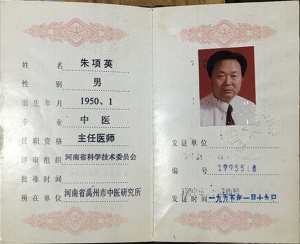 姓名 朱项英
性别 男
出生年月 1950、1
专业 中医
任职资格 主任医师
评审组织 河南省科学技术委员会
批准时间
所在单位 河南省禹州市中医研究所
发证单位
编号
发证时间